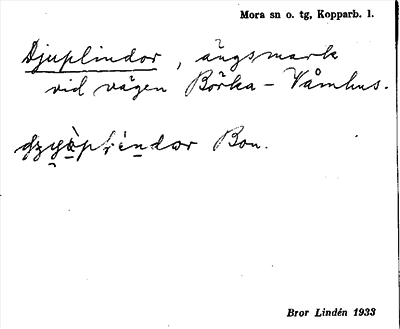 Mora sn o. tg, Kopparb. l.
Djuplindor, ängsmark
vid vägen Börka - Våmhus.
Bon.
Bror Lindén 1933